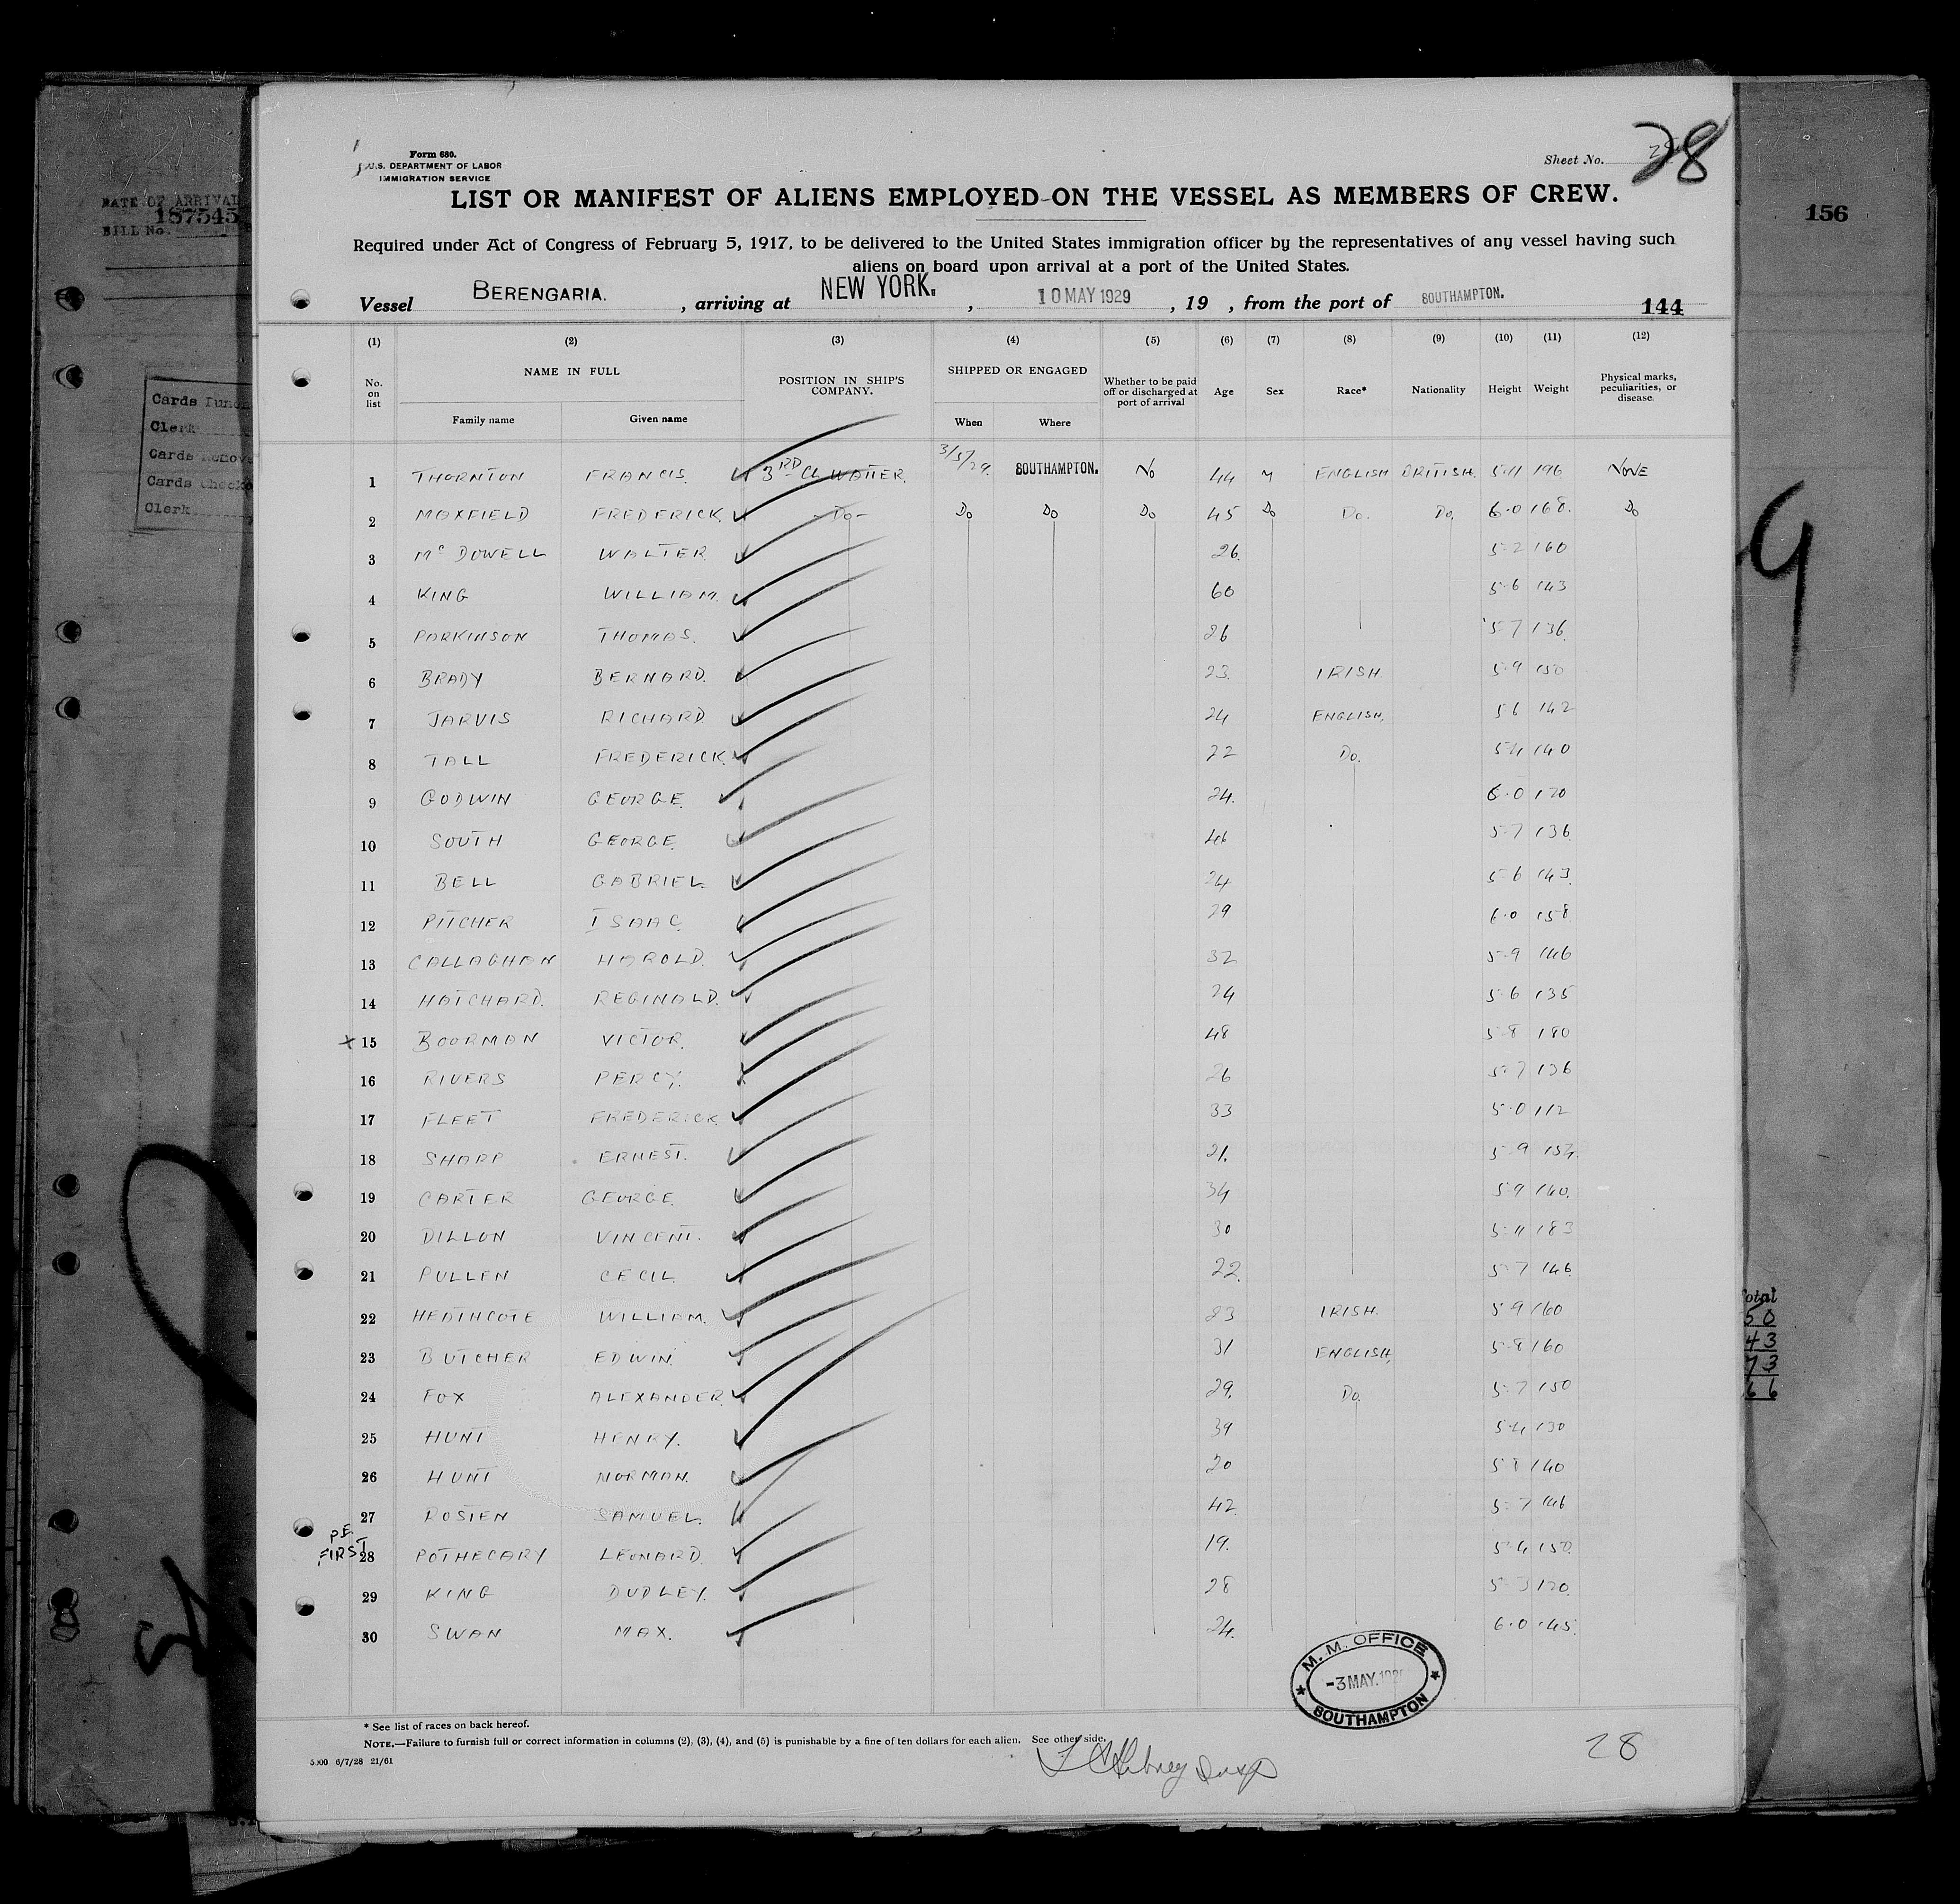 Form 680.
U.S. DEPARTMENT OF LABOR
IMMIGRATION SERVICE
Sheet No. 28
LIST OR MANIFEST OF ALIENS EMPLOYED ON THE VESSEL AS MEMBERS OF CREW.
Required under Act of Congress of February 5, 1917, to be delivered to the United States immigration officer by the representatives of any vessel having such
aliens on board upon arrival at a port of the United States.
Vessel BERENGARIA. , arriving at NEW YORK. , 10 MAY 1929 , 19 , from the port of SOUTHAMPTON. 144
(1) (2) (3) (4) (5) (6) (7) (8) (9) (10) (11) (12)
No. on list NAME IN FULL POSITION IN SHIP'S COMPANY. SHIPPED OR ENGAGED Whether to be paid off or discharged at port of arrival Age Sex Race* Nationality Height Weight Physical marks, peculiarities, or disease
Family name Given name When Where
1 THORNTON FRANCIS. 3RD CL WAITER. 3/5/29. SOUTHAMPTON. No 44 M ENGLISH BRITISH. 5-11 196 NONE
2 MOXFIELD FREDERICK. -Do- Do Do Do 45 Do Do. Do. 6-0 168. Do
3 McDOWELL WALTER. 26. 5-2 160
4 KING WILLIAM. 60 5-6 143
5 PARKINSON THOMAS. 26 5-7 136.
6 BRADY BERNARD. 23. IRISH. 5-9 150
7 JARVIS RICHARD. 24 ENGLISH. 5 6 142
8 TALL FREDERICK. 22 Do. 5-4 140
9 GODWIN GEORGE. 24. 6-0 170
10 SOUTH GEORGE. 46 5-7 136
11 BELL GABRIEL. 24 5-6 143.
12 PITCHER ISAAC. 29 6-0 158
13 CALLAGHAN HAROLD. 32 5-9 146
14 HATCHARD. REGINALD. 24 5-6 135
x 15 BOORMAN VICTOR. 48 5-8 180
16 RIVERS PERCY. 26 5-7 136
17 FLEET FREDERICK. 33 5-0 112
18 SHARP ERNEST. 21. 5-9 154.
19 CARTER GEORGE. 34 5-9 140.
20 DILLON VINCENT. 30 5-11 183
21 PULLEN CECIL. 22. 5-7 146.
22 HEATHCOTE WILLIAM. 23 IRISH. 5-9 160
23 BUTCHER EDWIN. 31 ENGLISH. 5-8 160
24 FOX ALEXANDER. 29. Do. 5-7 150
25 HUNT HENRY. 39 5-4 130
26 HUNT NORMAN. 20 5-8 140
27 ROSIEN SAMUEL. 42. 5-7 146
P.E. FIRST 28 POTHECARY LEONARD. 19. 5-4 150.
29 KING DUDLEY. 28 5-3 120.
30 SWAN MAX. 24. 6-0 145.
M. M. OFFICE
-3 MAY.192
SOUTHAMPTON
* See list of races on back hereof.
NOTE.—Failure to furnish full or correct information in columns (2), (3), (4), and (5) is punishable by a fine of ten dollars for each alien. See other side.
5000 6/7/28 21/61
28
DATE OF ARRIVAL
187545
BILL No.
Clerk
Clerk
156
9
50
43
73
66